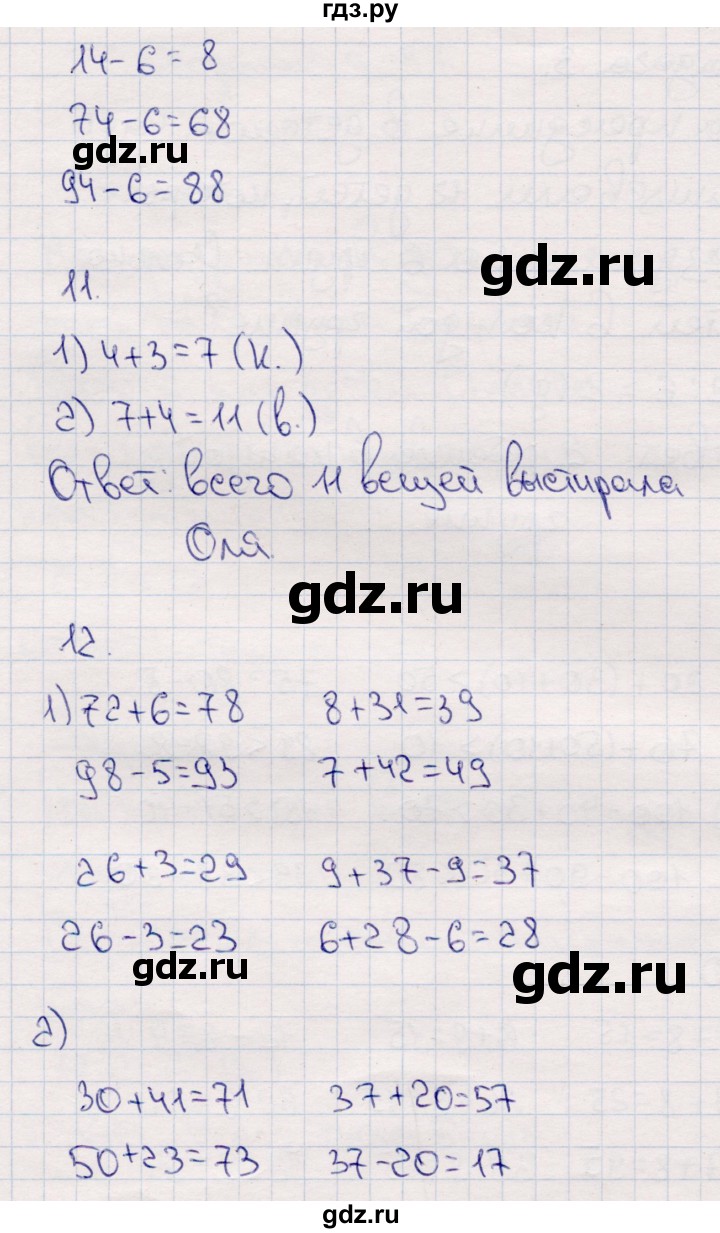 гдз.ру
14-6=8
74-6=68
gdz.ru
94-6=88
gdz.ru
11.
1) 4+3=7 (к.)
2) 7+4=11 (в.)
Ответ: всего 11 вещей выстирала
Оля.
gdz.ru
12.
1) 72+6=78 8+31=39
98-5=93 7+42=49
26+3=29 9+37-9=37
26-3=23 6+28-6=28
gdz.ru gdz.ru
2)
30+41=71 37+20=57
50+23=73 37-20=17
gdz.ru